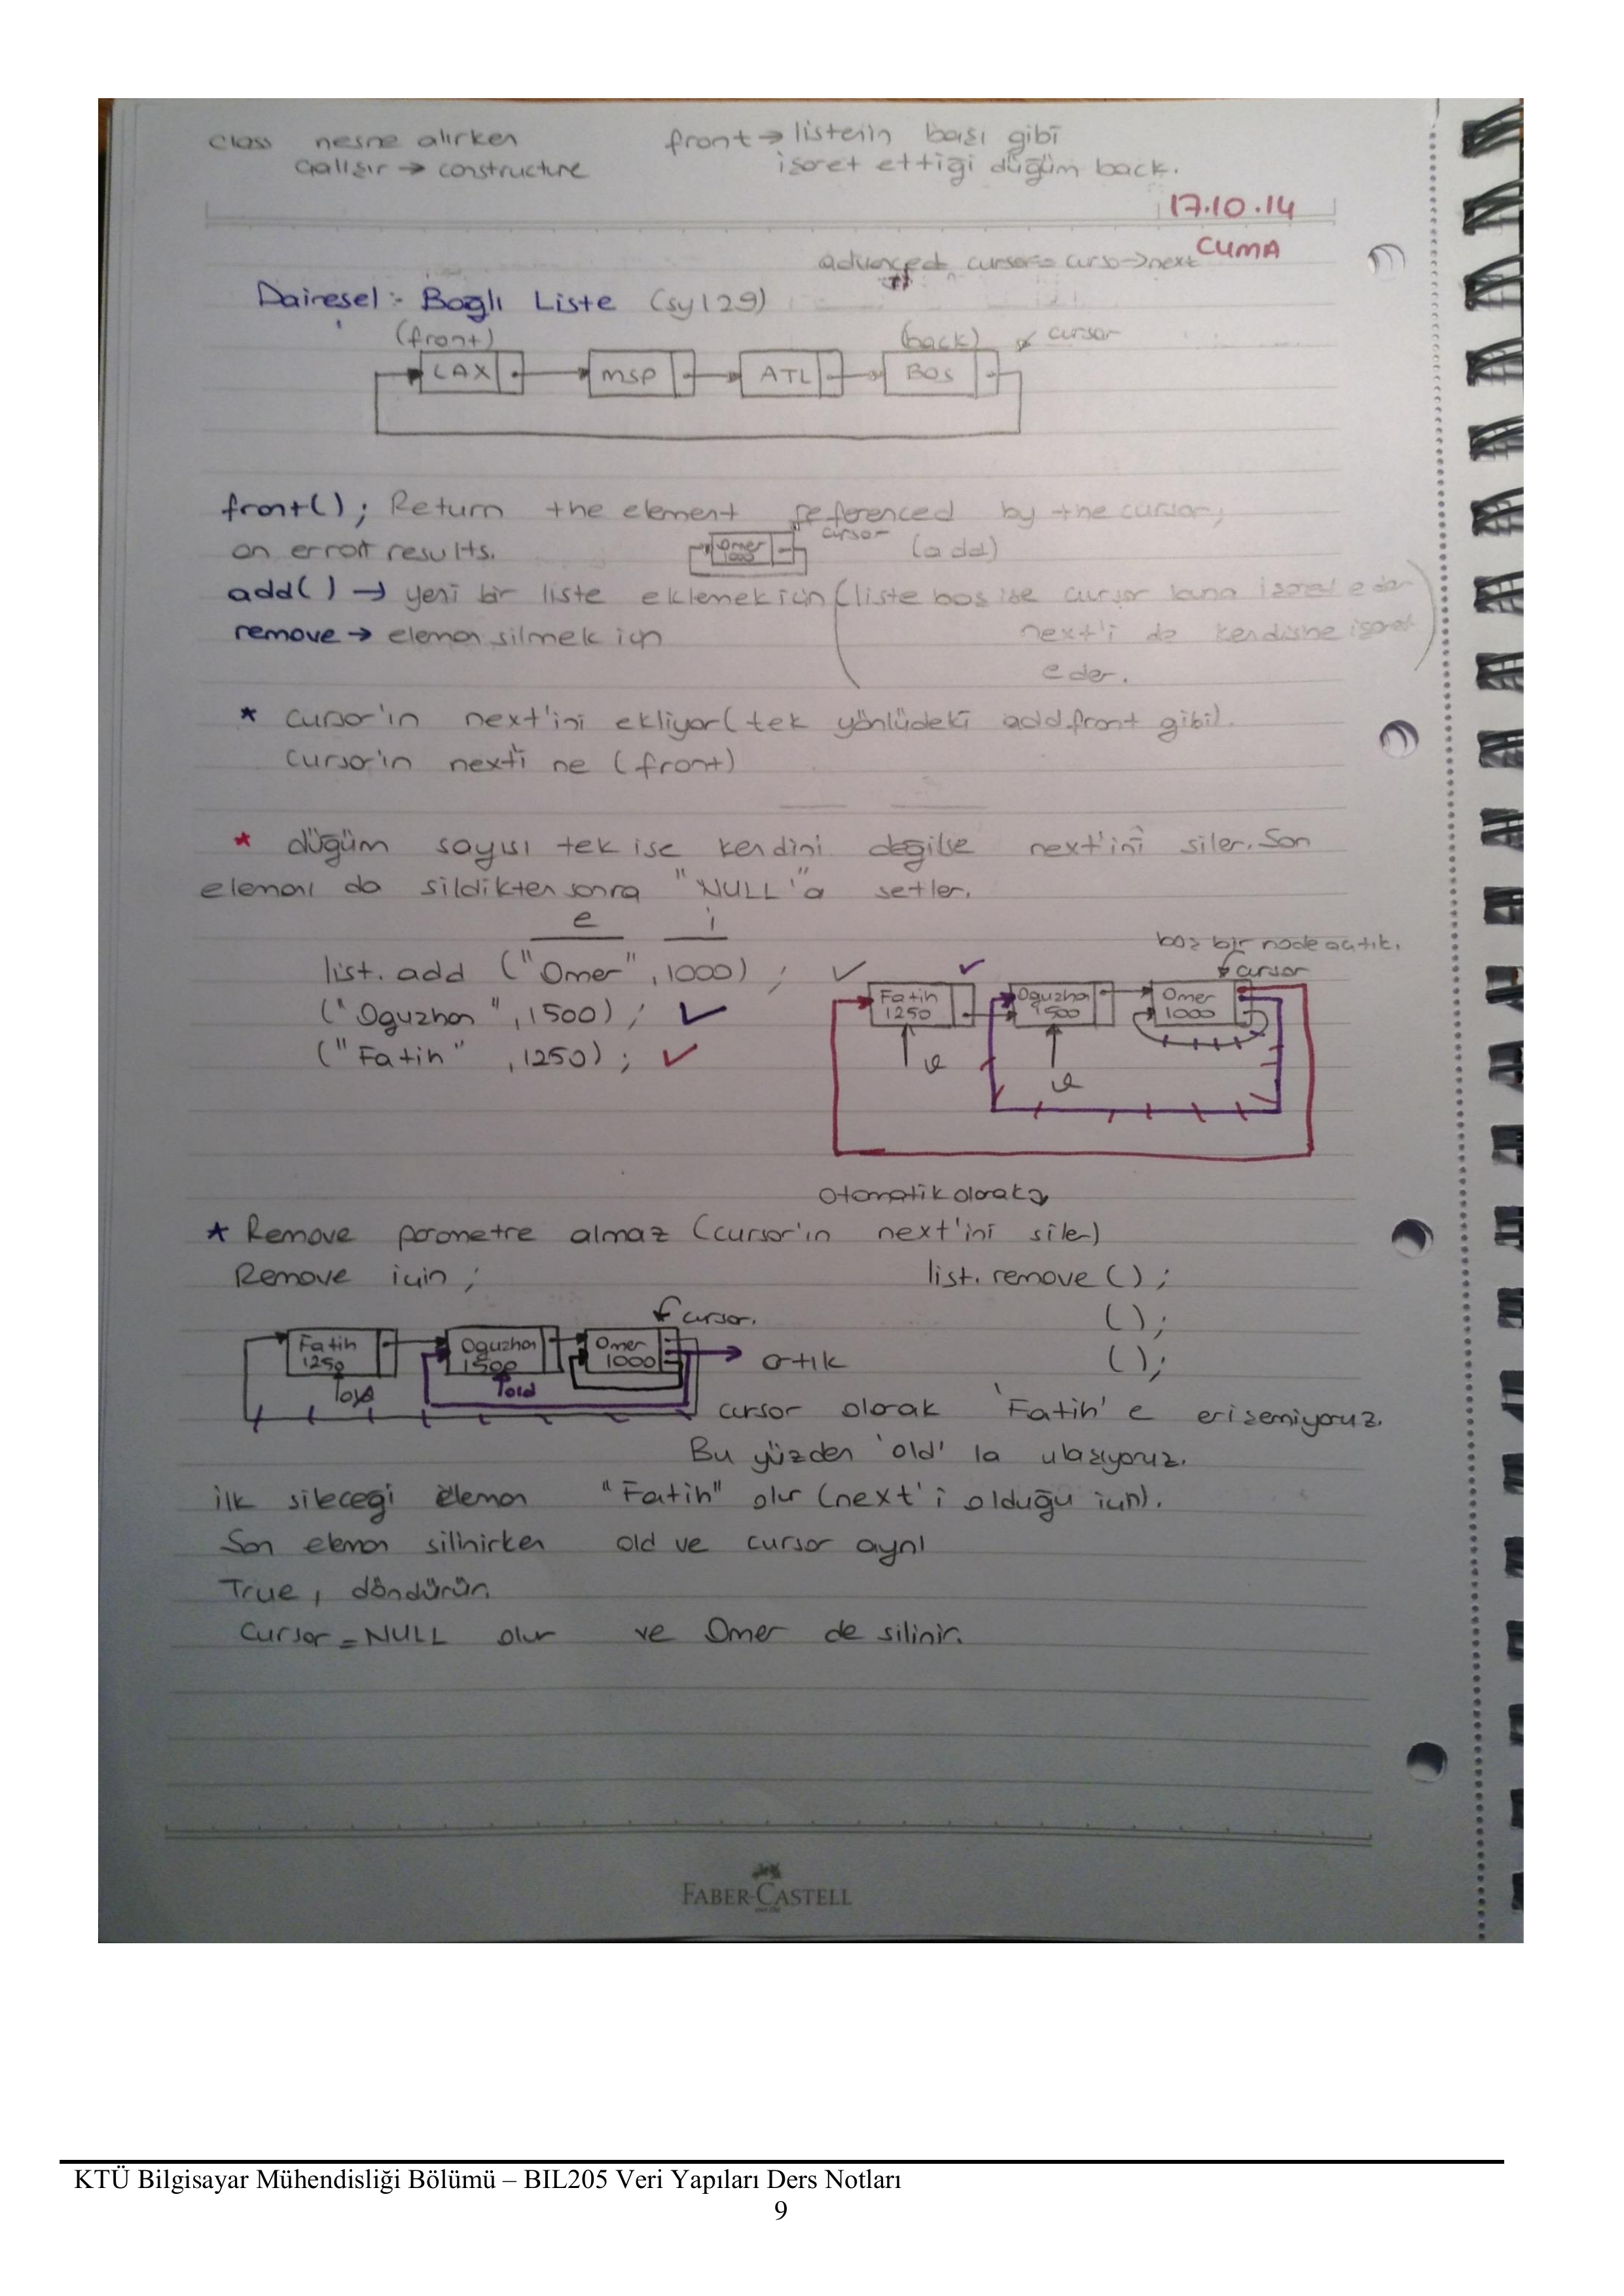 class nesne alırken front → listenin başı gibi
çalışır → constructure işaret ettiği düğüm back.
17.10.14
CUMA
advanced cursor= curso->next
Dairesel Bağlı Liste (sy129)
(front) (back) cursor
LAX MSP ATL BOS
front(); Return the element referenced by the cursor;
an error results. Omer 1000 cursor (add)
add() → yeni bir liste eklemek için (liste boş ise cursor buna işaret eder
remove → eleman silmek için next'i de kendisine işaret
eder.
* cursor'ın next'ini ekliyor (tek yönlüdeki addfront gibi).
cursor'ın next'i ne (front)
* düğüm sayısı tek ise kendini değilse next'ini siler. Son
elemanı da sildikten sonra "NULL"a setler.
e i
boş bir node açtık.
list. add ("Omer", 1000); ✓ ✓ cursor
("Oguzhan", 1500); ✓ Fatih 1250 Oguzhan 1500 Omer 1000
("Fatih", 1250); ✓ v v
otomatik olarak
* Remove parametre almaz (cursor'ın next'ini siler)
Remove için; list. remove ();
cursor. ();
Fatih 1250 Oguzhan 1500 Omer 1000 → artık ();
old old
cursor olarak 'Fatih' e erişemiyoruz.
Bu yüzden 'old' la ulaşıyoruz.
ilk sileceği eleman "Fatih" olur (next'i olduğu için).
Son eleman silinirken old ve cursor aynı
True, döndürür.
Cursor = NULL olur ve Omer de silinir.
FABER-CASTELL
KTÜ Bilgisayar Mühendisliği Bölümü – BIL205 Veri Yapıları Ders Notları
9